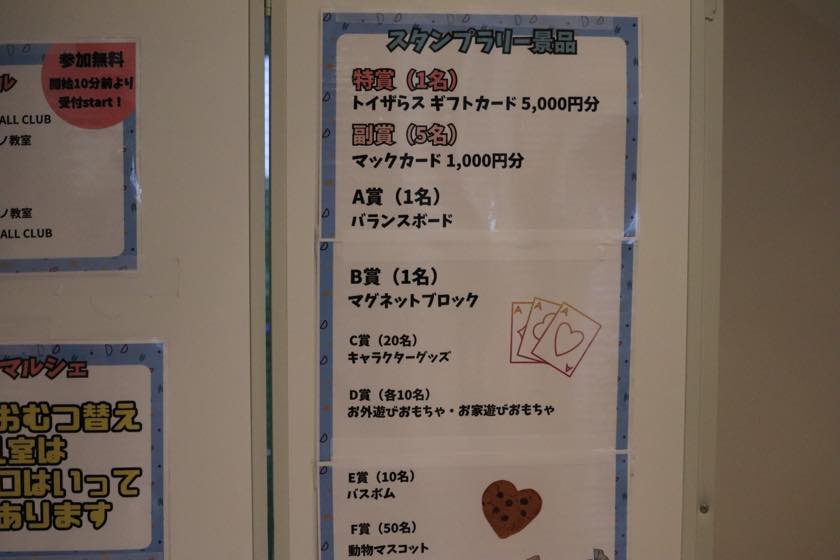 参加無料
開始10分前より
受付start！
ル
ALL CLUB
ノ教室
ノ教室
ALL CLUB
マルシェ
おむつ替え
室は
口はいって
あります
スタンプラリー景品
特賞（1名）
トイザらス ギフトカード 5,000円分
副賞（5名）
マックカード 1,000円分
A賞（1名）
バランスボード
B賞（1名）
マグネットブロック
C賞（20名）
キャラクターグッズ
D賞（各10名）
お外遊びおもちゃ・お家遊びおもちゃ
A
A
A
A
E賞（10名）
バスボム
F賞（50名）
動物マスコット